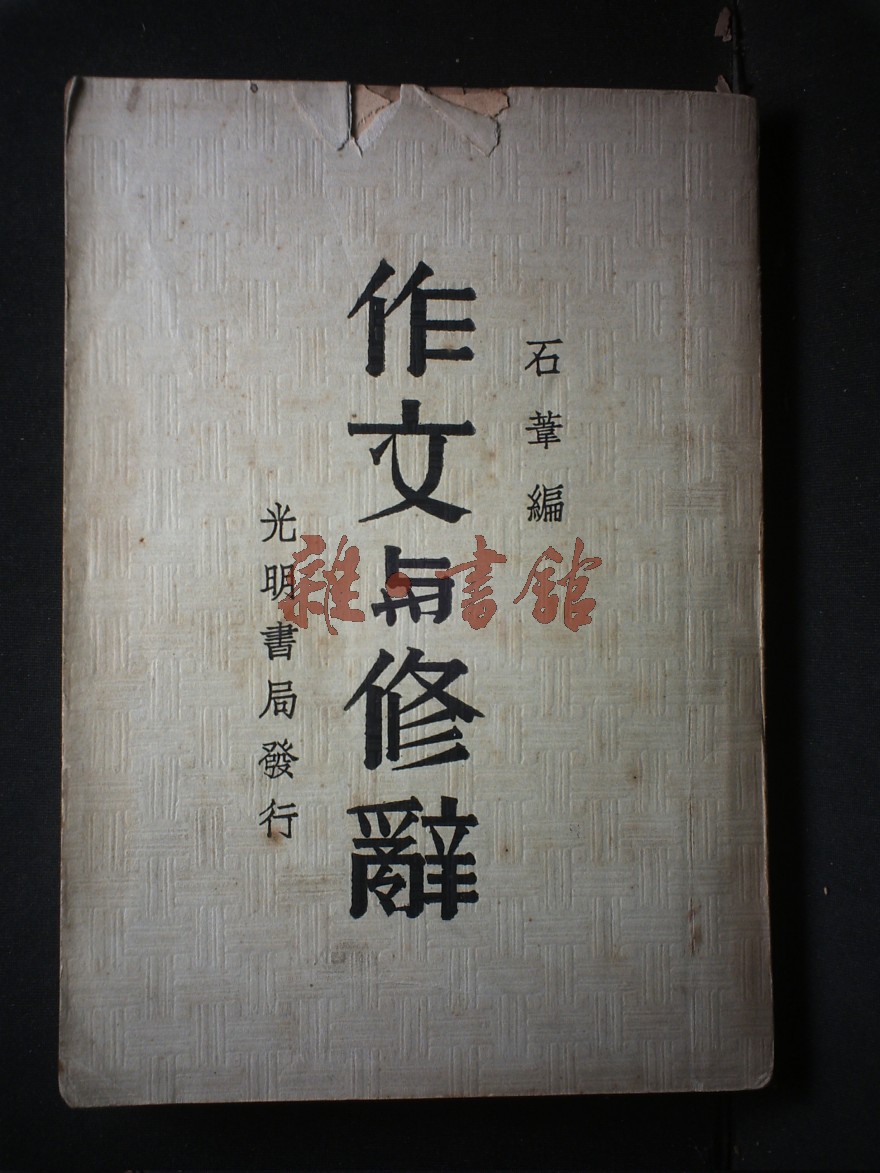 石葦編
作文與修辭
光明書局發行
雜·書館